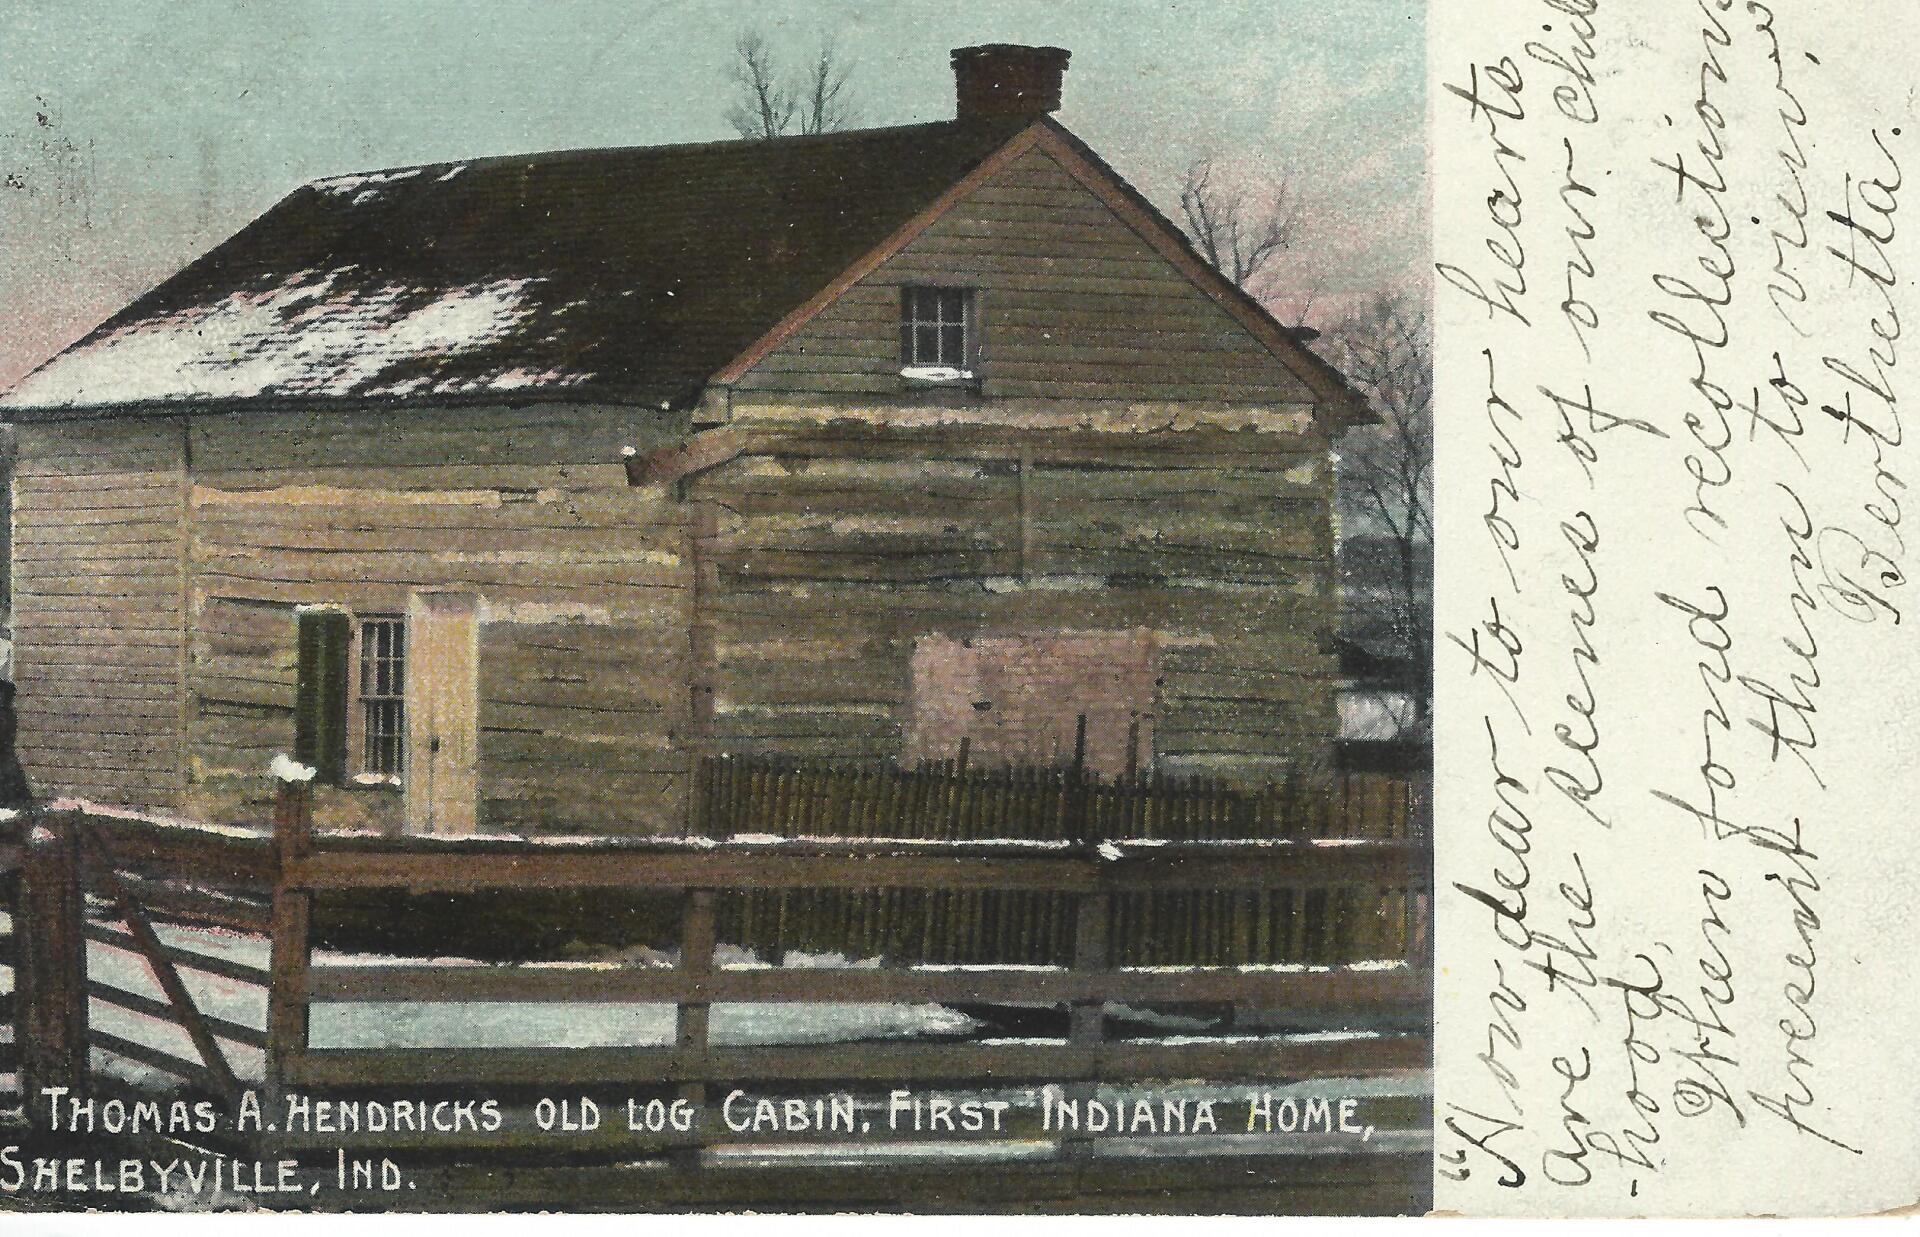 THOMAS A. HENDRICKS OLD LOG CABIN, FIRST INDIANA HOME,
SHELBYVILLE, IND.
"How dear to our hearts
are the scenes of our child
-hood,
When fond recollections
present them to view,"
Berthetta.